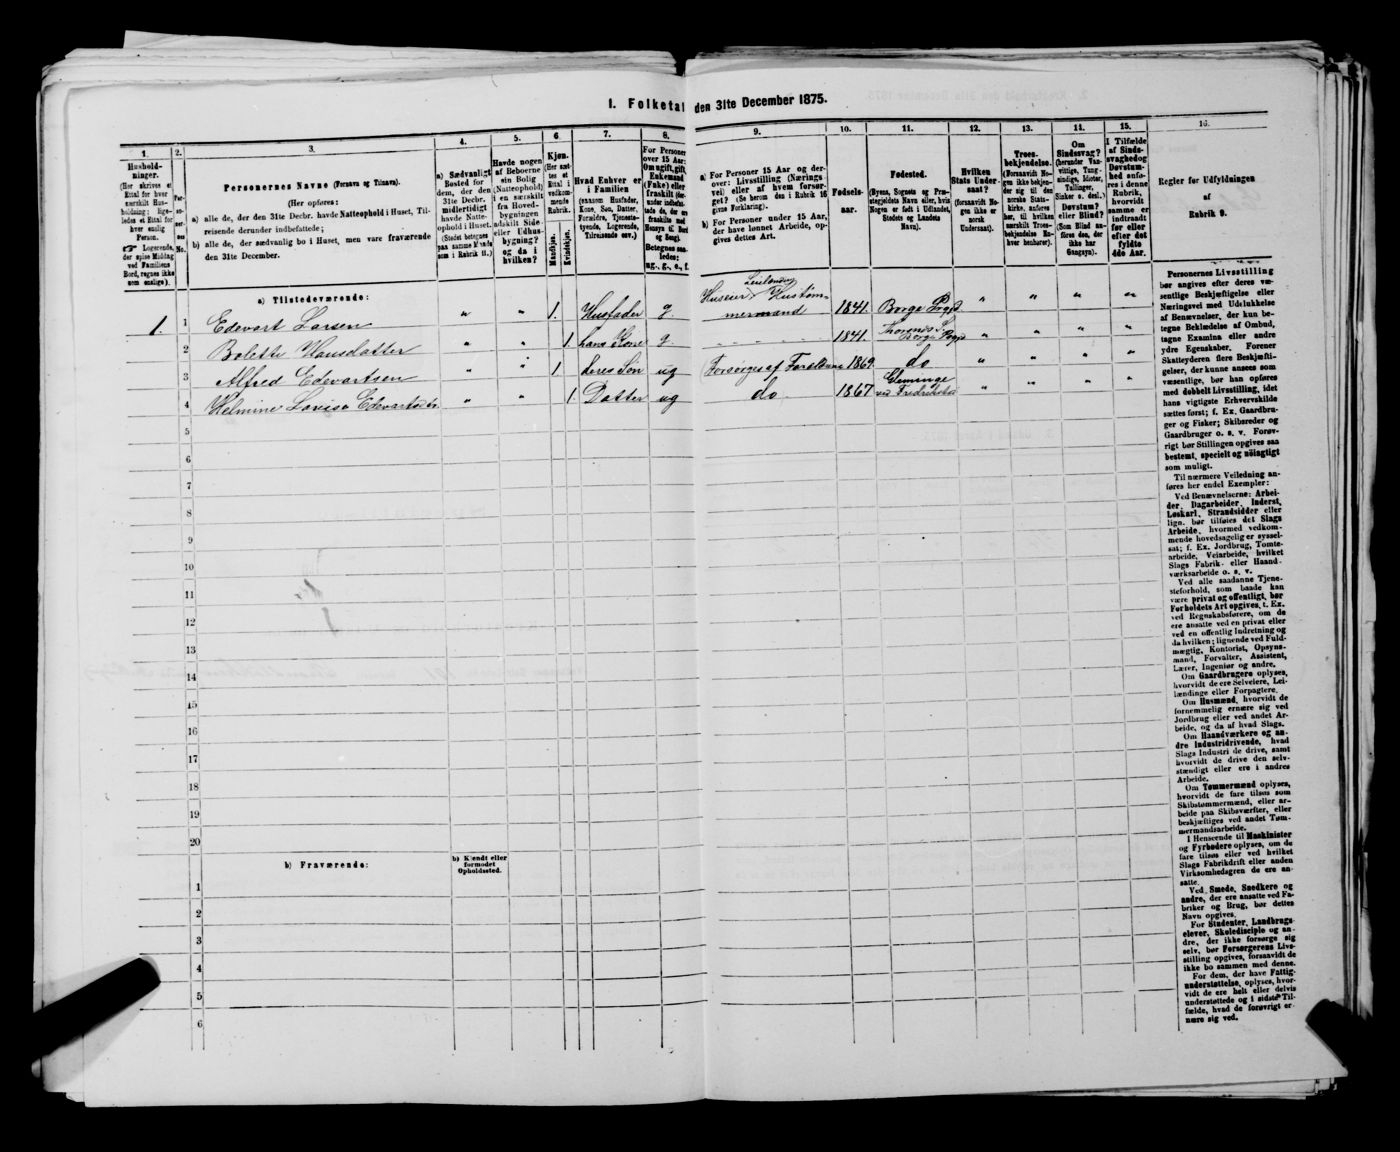 1. Folketal den 31te December 1875.
1.
Husholdninger.
(Her skrives et Ettal for hver særskilt Husholdning; ligeledes et Ettal for hver enslig Person.
☞ Logerende, der spise Middag ved Familiens Bord, regnes ikke som enslige).
2.
Personernes No.
3.
Personernes Navne (Fornavn og Tilnavn).
(Her opføres:
a) alle de, der den 31te Decbr. havde Natteophold i Huset, Tilreisende derunder indbefattede;
b) alle de, der sædvanlig bo i Huset, men vare fraværende den 31te December.
4.
a) Sædvanligt Bosted for dem, der den 31te Decbr. midlertidigt havde Natteophold i Huset.
(Stedet betegnes paa samme Maade som i Rubrik 11.)
5.
Havde nogen af Beboerne sin Bolig (Natteophold) i en særskilt fra Hovedbygningen adskilt Side- eller Udhusbygning? og da i hvilken?
6.
Kjøn.
(Her sættes et Ettal i vedkommende Rubrik.
Mandkjøn.
Kvindekjøn.
7.
Hvad Enhver er i Familien
(saasom Husfader, Kone, Søn, Datter, Forældre, Tjenestetyende, Logerende, Tilreisende osv.)
8.
For Personer over 15 Aar: Om ugift, gift, Enkemand (Enke) eller fraskilt
Betegnes saaledes: ug., g., e., f.
9.
a) For Personer 15 Aar og derover: Livsstilling (Næringsvei) eller af hvem forsørget? (Se herom den i Rubrik 16 givne Forklaring).
b) For Personer under 15 Aar, der have lønnet Arbeide, opgives dettes Art.
10.
Fødselsaar.
11.
Fødested.
(Byens, Sognets og Præstegjeldets Navn eller, hvis Nogen er født i Udlandet, Stedets og Landets Navn).
12.
Hvilken Stats Undersaat?
(forsaavidt Nogen ikke er norsk Undersaat).
13.
Troesbekjendelse.
(Forsaavidt Nogen ikke bekjender sig til den norske Statskirke, anføres her, til hvilken særskilt Troesbekjendelse Enhver henhører).
14.
Om Sindssvag? (herunder Vanvittige, Tungsindige, Idioter, Tullinger, Sinker o. desl.) Døvstum? eller Blind? (Som Blind anføres den, der ikke har Gangsyn).
15.
I Tilfælde af Sindssvaghed og Døvstumhed anføres i denne Rubrik, hvorvidt samme er indtraadt før eller efter det fyldte 4de Aar.
16.
Regler for Udfyldningen
af
Rubrik 9.
a) Tilstedeværende:
1. 1 Edevart Larsen " " 1. Husfader g. Huseier Leilænding Hustømmermand 1841. Borge Prgjd " " " "
2 Bolette Hansdatter " " 1 hans Kone g. - - - - 1841. Thorsnes S. Borge Prgjd " " " "
3 Alfred Edevartsen " " 1 deres Søn ug Forsørges af Forældrene 1869. do " " " "
4 Helmine Lovise Edvartsdtr " " 1. Datter ug do. 1867 Glemminge ved Fredrikstad " " " "
5
6
7
8
9
10
11
12
13
14
15
16
17
18
19
20
b) Fraværende:
b) Kjendt eller formodet Opholdssted.
1
2
3
4
5
6
Personernes Livsstilling
bør angives efter deres væ-
sentlige Beskjæftigelse eller
Næringsvei med Udelukkelse
af Benævnelser, der kun be-
tegne Beklædelse af Ombud,
tagne Examina eller andre
ydre Egenskaber. Forener
Skatteyderen flere Beskjæfti-
gelser, der kunne ansees som
væsentlige, bør han opføres
med dobbelt Livsstilling, idet
hans vigtigste Erhvervskilde
sættes først; f. Ex. Gaardbru-
ger og Fisker; Skibsreder og
Gaardbruger o. s. v. Forøv-
rigt bør Stillingen opgives saa
bestemt, specielt og nöiagtigt
som muligt.
Til nærmere Veiledning an-
føres her endel Exempler:
Ved Benævnelserne: Arbei-
der, Dagarbeider, Inderst,
Løskarl, Strandsidder eller
lign. bør tilføies det Slags
Arbeide, hvormed vedkom-
mende hovedsagelig er syssel-
sat; f. Ex. Jordbrug, Tomte-
arbeide, Veiarbeide, hvilket
Slags Fabrik- eller Haand-
værksarbeide o. s. v.
Ved alle saadanne Tjene-
steforhold, som baade kan
være privat og offentligt, bør
Forholdets Art opgives, t. Ex.
ved Regnskabsførere, om de
ere ansatte ved en privat eller
ved en offentlig Indretning og
da hvilken; lignende ved Fuld-
mægtig, Kontorist, Opsyns-
mand, Forvalter, Assistent,
Lærer, Ingeniør og andre.
Om Gaardbrugere oplyses,
hvorvidt de ere Selveiere, Lei-
lændinge eller Forpagtere.
Om Husmænd, hvorvidt de
fornemmelig ernære sig ved
Jordbrug eller ved andet Ar-
beide, og da af hvad Slags.
Om Haandværkere og an-
dre Industridrivende, hvad
Slags Industri de drive, samt
hvorvidt de drive den selv-
stændigt eller ere i andres
Arbeide.
Om Tømmermænd oplyses,
hvorvidt de fare tilsøs som
Skibstømmermænd, eller ar-
beide paa Skibsværfter, eller
beskjæftiges ved andet Tøm-
mermandsarbeide.
I Henseende til Maskinister
og Fyrbødere oplyses, om de
fare tilsøs eller ved hvilket
Slags Fabrikdrift eller anden
Virksomhedsgren de ere an-
satte.
Ved Smede, Snedkere og
andre, der ere ansatte ved Fa-
briker og Brug, bør dettes
Navn opgives.
For Studenter, Landbrugs-
elever, Skoledisciple og an-
dre, der ikke forsørge sig
selv, bør Forsørgerens Livs-
stilling opgives, forsaavidt de
ikke bo sammen med denne.
For dem, der have Fattig-
understøttelse, oplyses, hvor-
vidt de ere helt eller delvis
understøttede og i sidste Til-
fælde, hvad de forøvrigt er-
nære sig ved.